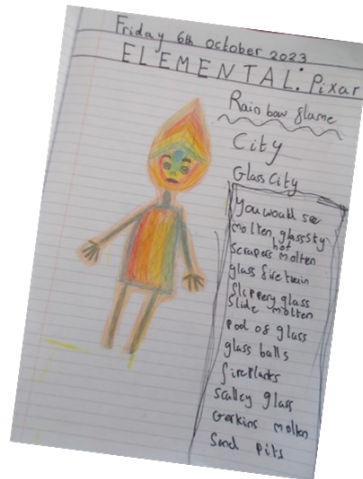 Friday 6th October 2023
ELEMENTAL: Pixar
Rainbow flame
City
Glass City
You would see
molten glass sty
hot
scrapers molten
glass fire train
Slippery glass
Slide molten
pool of glass
glass balls
fireplacks
scalley glass
Gerkins molten
Sand pits